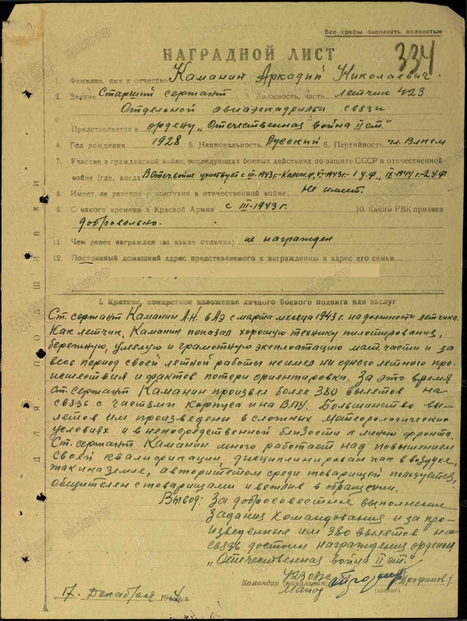 Все графы заполнять полностью
334
НАГРАДНОЙ ЛИСТ
1. Фамилия, имя и отчество Каманин Аркадий Николаевич
2. Звание Старший сержант Должность, часть летчик 423
Отдельной авиаэскадрильи связи
Представляется к ордену „Отечественная война II ст."
4. Год рождения 1928 5. Национальность Русский 6. Партийность чл. ВЛКСМ
7. Участие в гражданской войне, последующих боевых действиях по защите СССР и отечественной
войне (где, когда)
8. Имеет ли ранения и контузии в отечественной войне Не имеет.
9. С какого времени в Красной Армии с III-1943 г. 10. Каким РВК призван
добровольно.
11. Чем ранее награжден (за какие отличия) не награжден
12. Постоянный домашний адрес представляемого к награждению и адрес его семьи
I. Краткое, конкретное изложение личного боевого подвига или заслуг
Ст. сержант Каманин А.Н. в АЭ с марта месяца 1943 г. на должности летчика.
Как летчик, Каманин показал хорошую технику пилотирования,
бережную, умелую и грамотную эксплоатацию мат. части и за
весь период своей летной работы не имел ни одного летного про-
исшествия и фактов потери ориентировки. За это время
ст. сержант Каманин произвел более 380 вылетов на
связь с частями корпуса и на ВПУ. Большинство вы-
летов им произведено в сложных метеорологических
условиях и в непосредственной близости к линии фронта.
Ст. сержант Каманин много работает над повышением
своей квалификации, дисциплинирован как в воздухе,
так и на земле, авторитетом среди товарищей пользуется,
общителен с товарищами и вежлив в обращении.
Вывод: За добросовестные выполнение
задания командования и за про-
изведенные им 380 вылетов на
связь достоин награждения орденом
„Отечественная война II ст."
423 ОАЭС
Командир
Майор Трофимов
17 декабря 1944
ДЛЯ ПОДШИВКИ